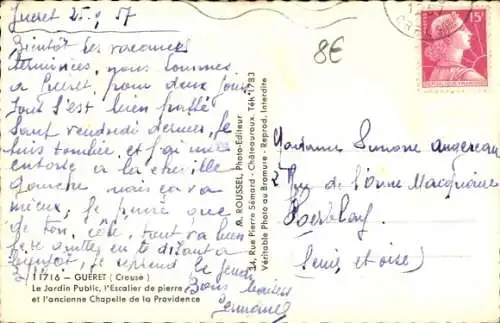 Guéret 25.9.57
Bientôt les vacances
terminées, nous sommes
à Guéret, pour deux jours
Tout s'est bien passé
Sauf vendredi dernier, je
suis tombée, et j'ai une
entorse à la cheville
gauche mais ça va
mieux, je pense que
de ton côté, tout va bien
Je te quitte en te disant à
bientôt, je reprend le jeudi
3/10/
Bons baisers
11716 - GUÉRET (Creuse)
Le Jardin Public, l'Escalier de pierre
et l'ancienne Chapelle de la Providence
A. ROUSSEL, Photo-Editeur
34, Rue Pierre Sémard - Châteauroux. Tél. 1783
Véritable Photo au Bromure - Reprod. Interdite
8€
15F
Madame Simone Angereau
2 Rue de l'Orme Macquaire
(Seine et Oise)